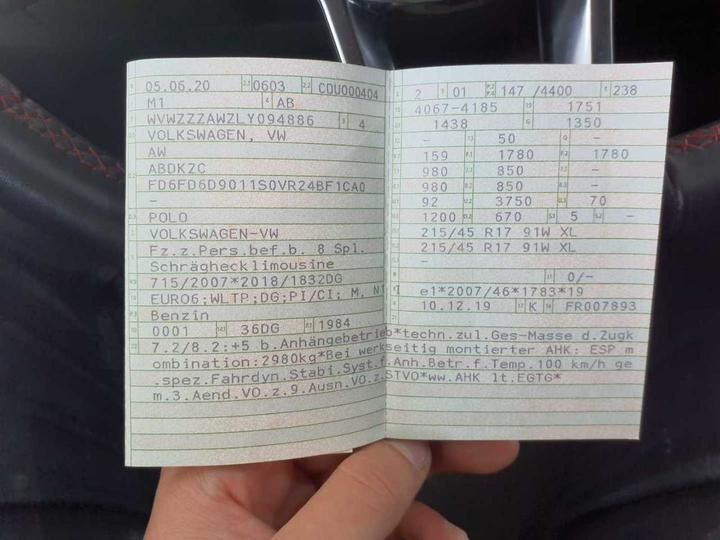 05.06.20 2.1 0603 2.2 CDU000404
M1 4 AB
WVWZZZAWZLY094886 3 4
VOLKSWAGEN, VW
AW
ABDKZC
FD6FD6D9011S0VR24BF1CA0
-
POLO
VOLKSWAGEN-VW
Fz.z.Pers.bef.b. 8 Spl.
Schräghecklimousine
715/2007*2018/1832DG
EURO6;WLTP;DG;PI/CI; M, N1
Benzin
0001 36DG 1984
2 01 147 /4400 238
4067-4185 1751
1438 1350
- 50 -
159 1780 1780
980 850 -
980 850 -
92 3750 70
1200 670 5 -
215/45 R17 91W XL
215/45 R17 91W XL
-
- 0/-
e1*2007/46*1783*19
10.12.19 K FR007893
7.2/8.2:+5 b.Anhängebetrieb*techn.zul.Ges-Masse d.Zugk
ombination:2980kg*Bei werkseitig montierter AHK: ESP m
.spez.Fahrdyn.Stabi.Syst.f.Anh.Betr.f.Temp.100 km/h ge
m.3.Aend.VO.z.9.Ausn.VO.z.STVO*ww.AHK lt.EGTG*